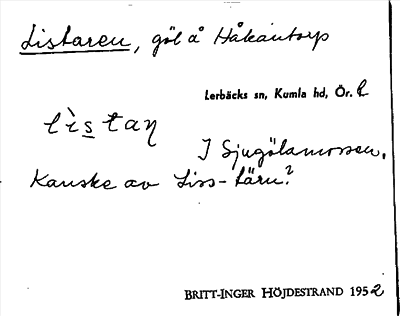 Listaren, göl å Håkantorp
Lerbäcks sn, Kumla hd, Ör. 2
lìstaɳ
I Sjugölamossen.
Kanske av Liss-tärn?
BRITT-INGER HÖJDESTRAND 1952